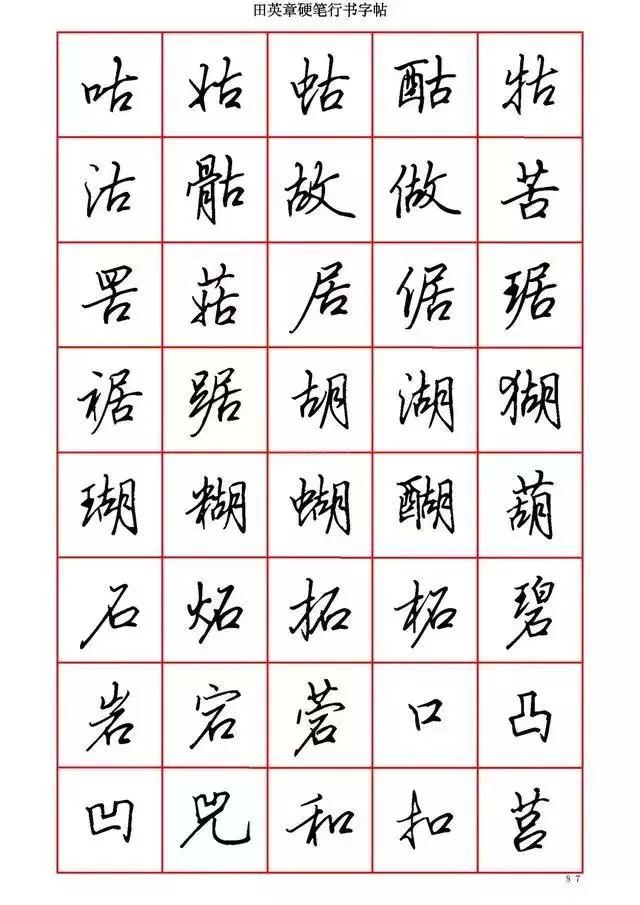 田英章硬笔行书字帖
咕姑蛄酤牯
沽骷故做苦
罟菇居倨琚
裾踞胡湖猢
瑚糊蝴醐葫
石炻拓柘碧
岩宕菪口凸
凹兕和扣莒
87